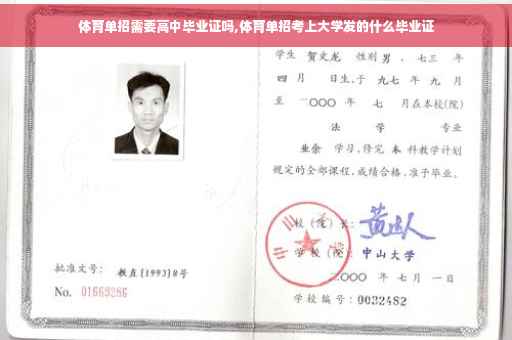 体育单招需要高中毕业证吗,体育单招考上大学发的什么毕业证
学生 贺文龙 性别 男 、七三 年
四 月 日生,于 九七 年 九 月
至 二〇〇〇 年 七 月在本校(院)
法 学 专业
业余 学习,修完 本 科教学计划
规定的全部课程,成绩合格,准予毕业。
校(院)长:
学校(院): 中山大学
二〇〇〇 年 七 月 一 日
学校编号: 0032482
批准文号: 教直[1993]8号
No. 01663286